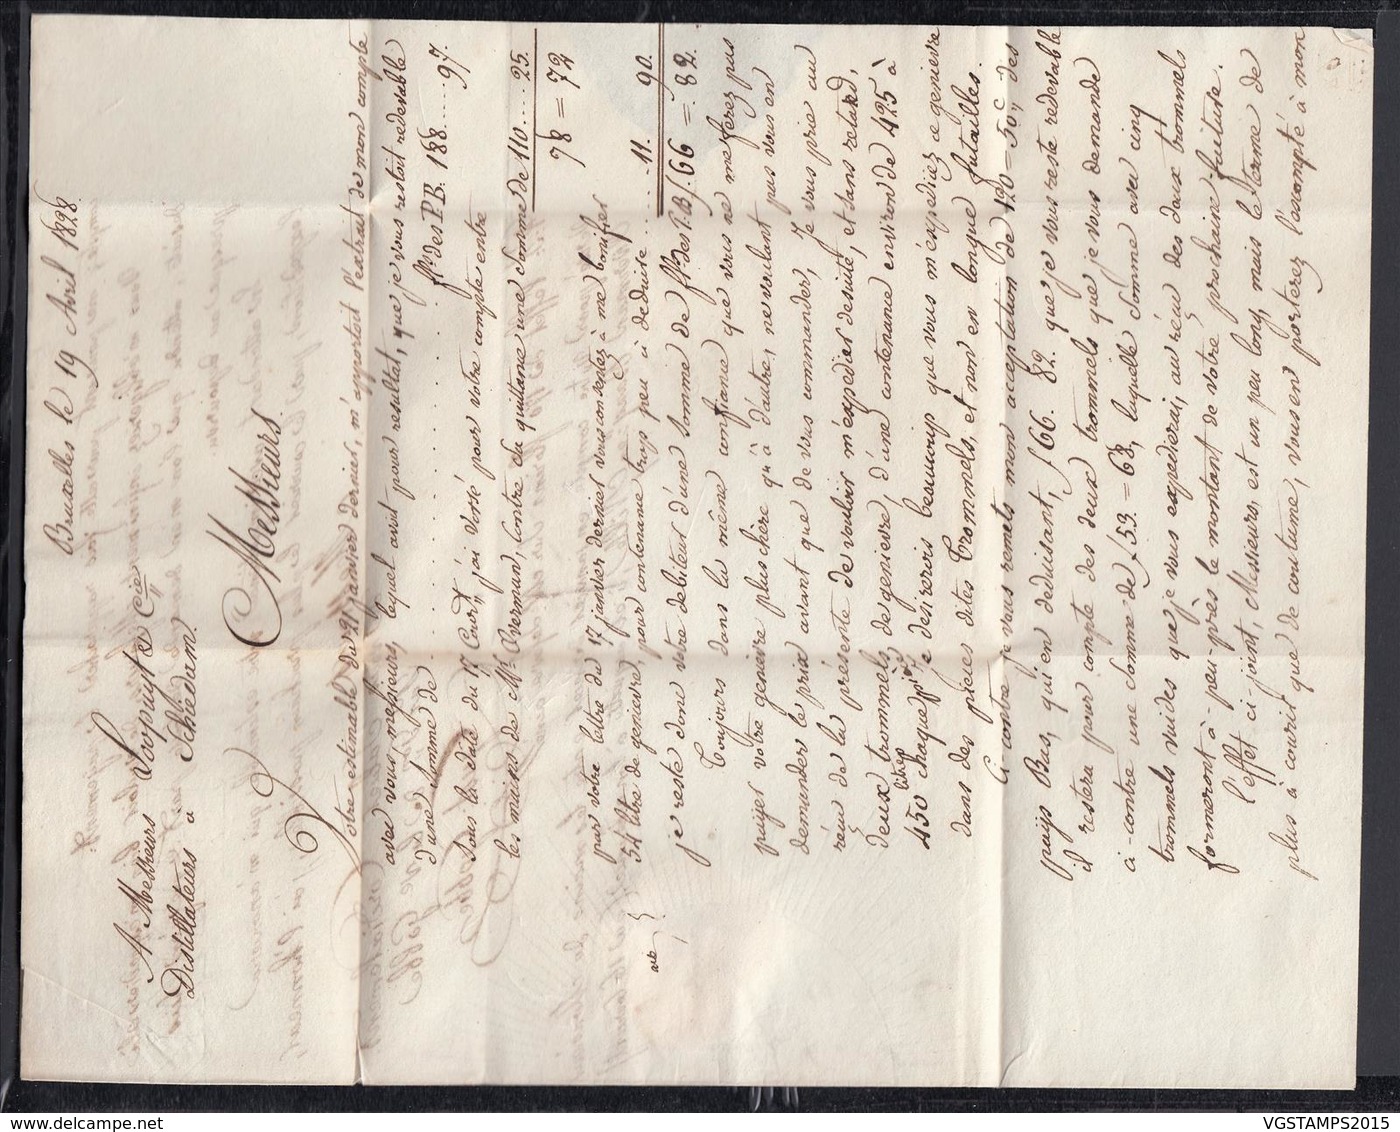 Bruxelles le 19 Avril 1828.
A Messieurs Loopuyt & Cie
Distillateurs à Schiedam.
Messieurs
Votre estimable du 21 janvier dernier, m'apportoit l'extrait de mon compte
avec vous messieurs, lequel avoit pour resultat, que je vous restait redevable
d'une somme de ffs des P.B. 188 .... 97.
Sous la date du 17 Cert, j'ai versé pour votre compte entre
les mains de Mr. Overman, contre du quittance une somme de 110 .... 25.
78 = 72
par votre lettre du 17 janvier dernier vous consentez à me bonifier
54 litre de genievre, pour contenance trop peu à deduire .... 11. 90.
je reste donc votre debiteur d'une somme de ffs des P.B. f 66 = 82.
Toujours dans la même confiance que vous ne me ferez pas
payer votre genievre plus chère qu'à d'autre, ne voulant pas vous en
demander le prix avant que de vous commander, je vous prie au
réçu de la présente de vouloir m'expedier desuite, et sans retard,
deux trommels de genievre, d'une contenance environ de 425 à
450 litres chaque pièce, je désirerois beaucoup que vous m'expediez ce genievre
dans des pièces dites Trommels, et non en longue futailles.
Ci contre je vous remets mon acceptation de 120 = 50 c, des
pays Bas, qui en deduisant, f 66. 82. que je vous reste redevable
restera pour compte des deux trommels que je vous demande
ci-contre une somme de f 53. = 68, laquelle somme avec cinq
trommels vuides que je vous expederai, au réçu des deux trommels
formeront à-peu-près le montant de votre prochaine facture.
l'effet ci-joint, Messieurs, est un peu long, mais le terme de
plus à courir que de coutume, vous en porterez l'acompte à mon
VGSTAMPS2015